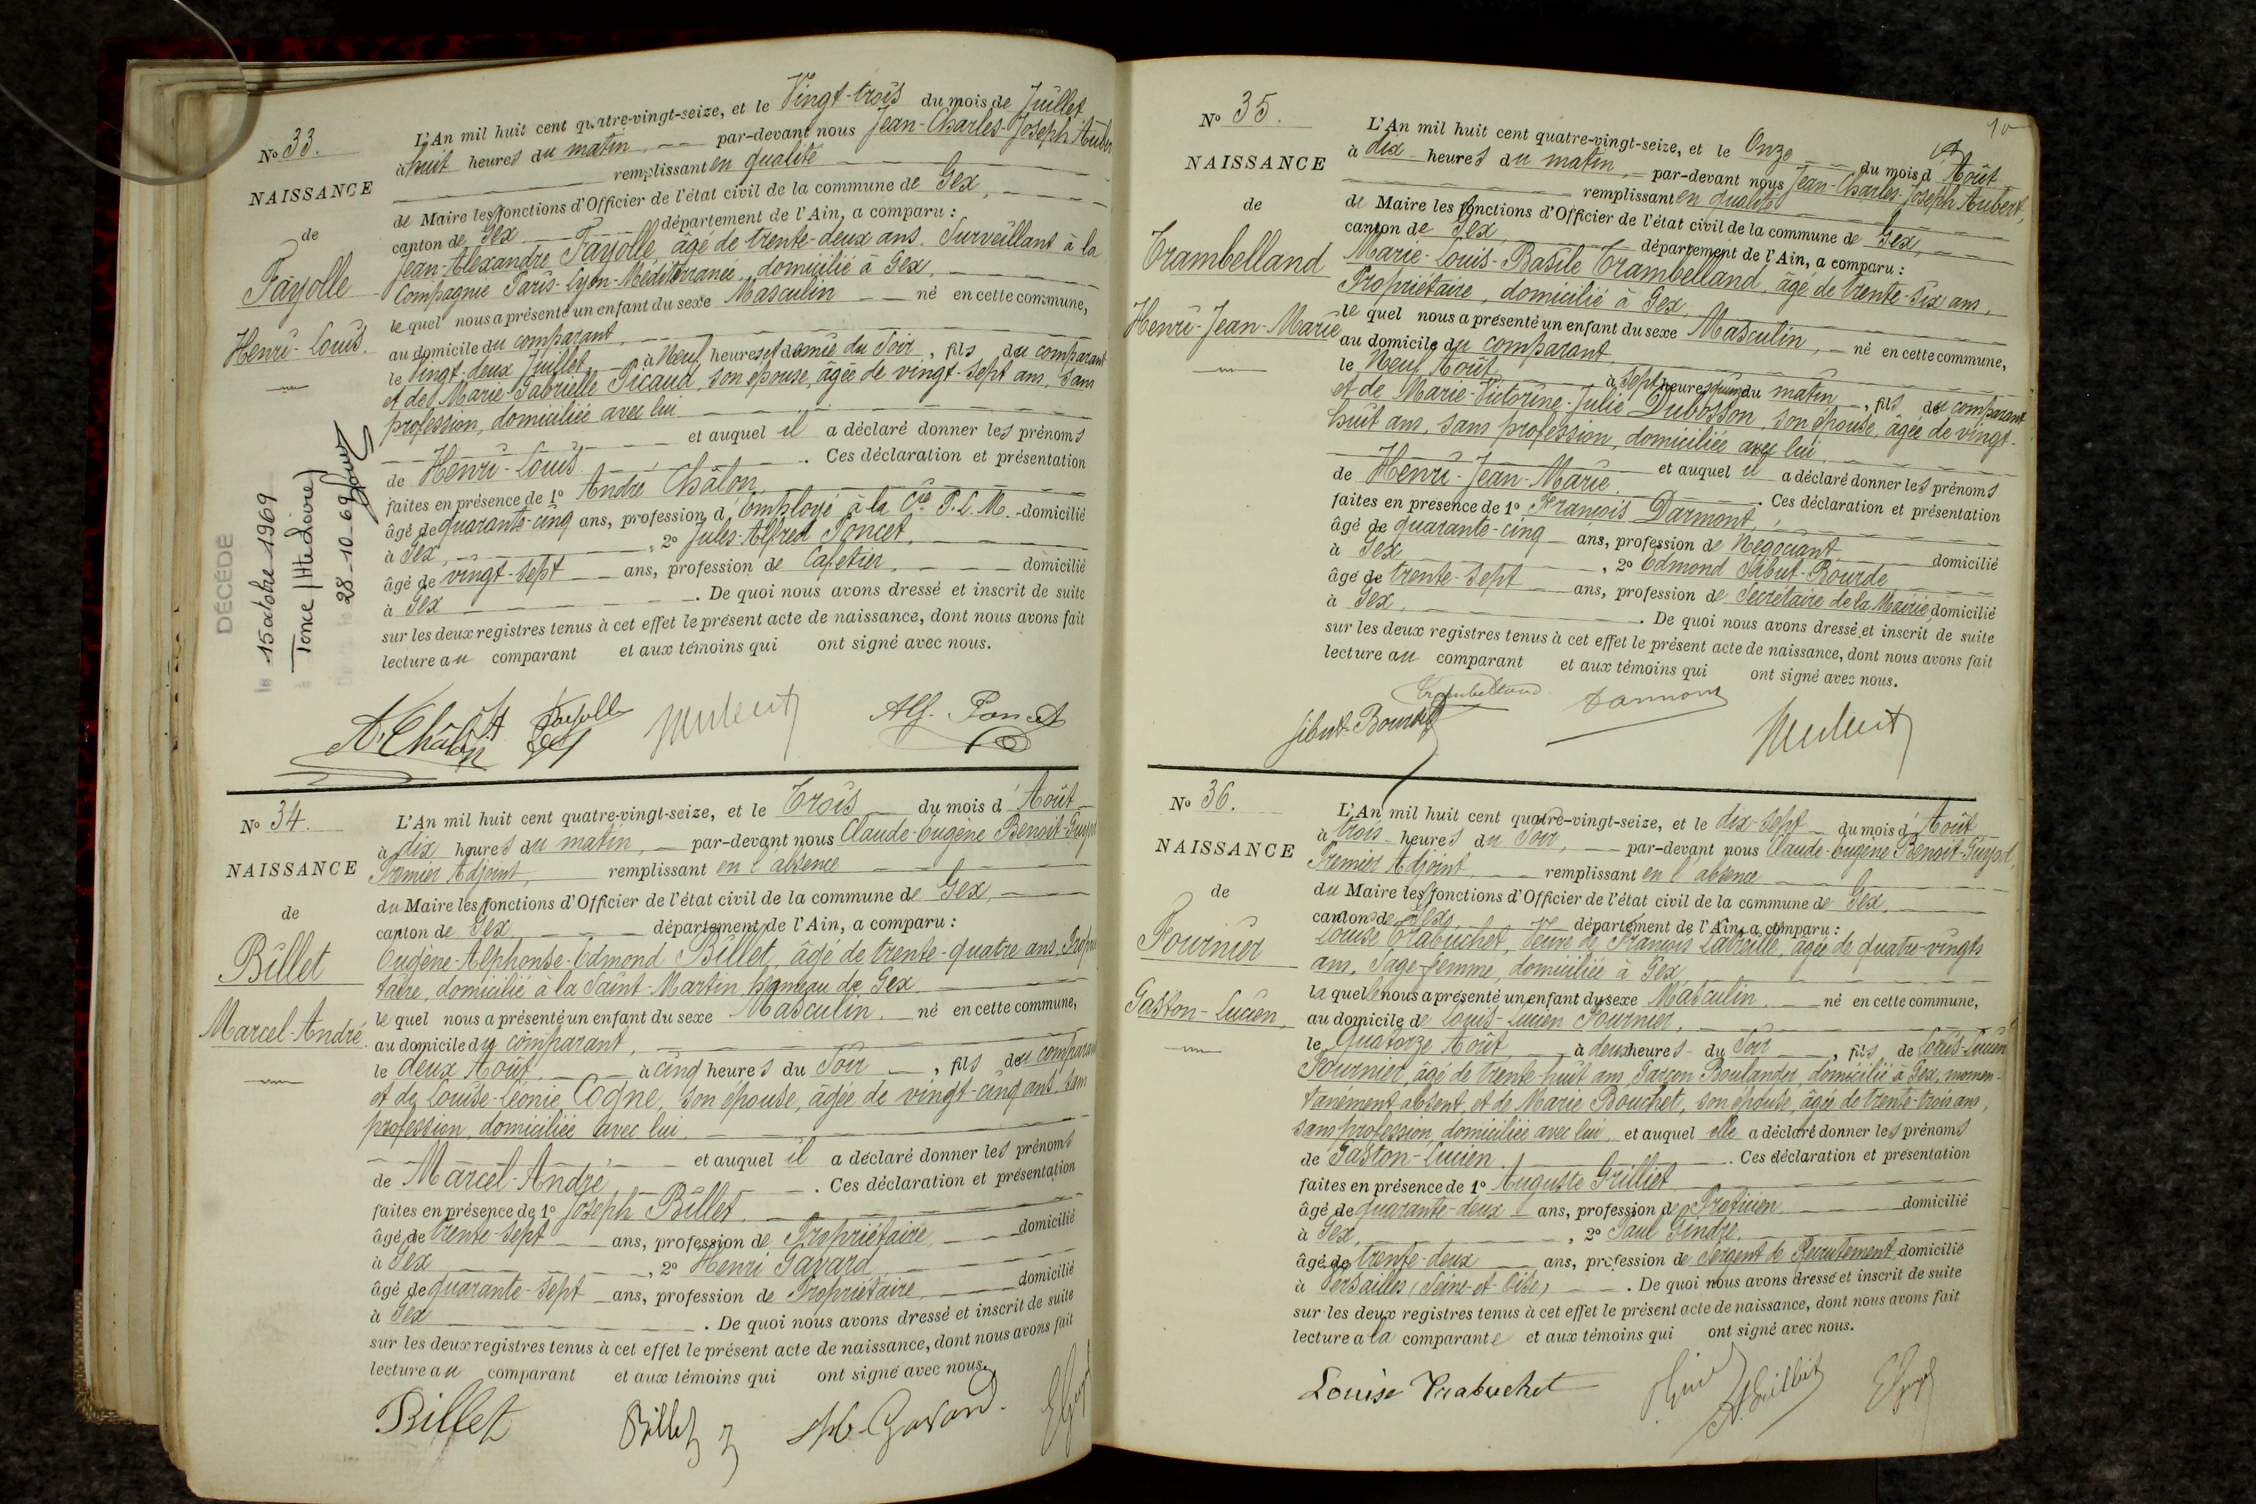 N° 33.
NAISSANCE
de
Fayolle
Henri-Louis.
DÉCÉDÉ
le 15 octobre 1969
à Tence (Hte Loire)
28-10-69
L'An mil huit cent quatre-vingt-seize, et le Vingt-trois du mois de Juillet
à huit heures du matin, par-devant nous Jean-Charles-Joseph Aubert
remplissant en qualité
de Maire les fonctions d'Officier de l'état civil de la commune de Gex,
canton de Gex département de l'Ain, a comparu :
Jean-Alexandre Fayolle, âgé de trente-deux ans, Surveillant à la
Compagnie Paris-Lyon-Méditerranée, domicilié à Gex,
le quel nous a présenté un enfant du sexe Masculin né en cette commune,
au domicile du comparant,
le vingt-deux Juillet à Neuf heures et demie du Soir, fils du comparant
et de Marie-Gabrielle Picaud, son épouse, âgée de vingt-sept ans, sans
profession, domiciliée avec lui
et auquel il a déclaré donner les prénoms
de Henri-Louis. Ces déclaration et présentation
faites en présence de 1° André Châlon,
âgé de quarante-cinq ans, profession d'Employé à la Cie P.L.M. domicilié
à Gex, 2° Jules-Alfred Poncet,
âgé de vingt-sept ans, profession de Cafetier, domicilié
à Gex. De quoi nous avons dressé et inscrit de suite
sur les deux registres tenus à cet effet le présent acte de naissance, dont nous avons fait
lecture au comparant et aux témoins qui ont signé avec nous.
A. Châlon Fayolle Aubert Alf. Poncet
N° 34.
NAISSANCE
de
Billet
Marcel-André.
L'An mil huit cent quatre-vingt-seize, et le Trois du mois d'Août
à dix heures du matin, par-devant nous Claude-Eugène Benoit-Guyod
Premier Adjoint, remplissant en l'absence
du Maire les fonctions d'Officier de l'état civil de la commune de Gex,
canton de Gex département de l'Ain, a comparu :
Eugène-Alphonse-Edmond Billet, âgé de trente-quatre ans, Proprié
taire, domicilié à la Saint-Martin hameau de Gex
le quel nous a présenté un enfant du sexe Masculin, né en cette commune,
au domicile du comparant,
le deux Août à cinq heures du Soir, fils du comparant
et de Louise-Léonie Cogne, son épouse, âgée de vingt-cinq ans, sans
profession, domiciliée avec lui.
et auquel il a déclaré donner les prénoms
de Marcel-André. Ces déclaration et présentation
faites en présence de 1° Joseph Billet,
âgé de trente-sept ans, profession de Propriétaire domicilié
à Gex, 2° Henri Gavard,
âgé de quarante-sept ans, profession de Propriétaire, domicilié
à Gex. De quoi nous avons dressé et inscrit de suite
sur les deux registres tenus à cet effet le présent acte de naissance, dont nous avons fait
lecture au comparant et aux témoins qui ont signé avec nous.
Billet Billet J H. Gavard EGuyod
10
N° 35.
NAISSANCE
de
Trambelland
Henri-Jean-Marie
L'An mil huit cent quatre-vingt-seize, et le Onze du mois d'Août
à dix heures du matin, par-devant nous Jean-Charles-Joseph Aubert,
remplissant en qualité
de Maire les fonctions d'Officier de l'état civil de la commune de Gex,
canton de Gex, département de l'Ain, a comparu :
Marie-Louis-Basile Trambelland, âgé de trente-six ans,
Propriétaire, domicilié à Gex,
le quel nous a présenté un enfant du sexe Masculin, né en cette commune,
au domicile du comparant
le Neuf Août à sept heures du matin, fils du comparant
et de Marie-Victorine-Julie Dubosson, son épouse, âgée de vingt-
huit ans, sans profession, domiciliée avec lui
et auquel il a déclaré donner les prénoms
de Henri-Jean-Marie. Ces déclaration et présentation
faites en présence de 1° François Darmont,
âgé de quarante-cinq ans, profession de Négociant domicilié
à Gex, 2° Edmond Sibut-Bourde
âgé de trente-sept ans, profession de Secrétaire de la Mairie, domicilié
à Gex,. De quoi nous avons dressé et inscrit de suite
sur les deux registres tenus à cet effet le présent acte de naissance, dont nous avons fait
lecture au comparant et aux témoins qui ont signé avec nous.
Trambelland Darmont
Sibut-Bourde Aubert
N° 36.
NAISSANCE
de
Fournier
Gaston-Lucien,
L'An mil huit cent quatre-vingt-seize, et le dix-sept du mois d'Août
à trois heures du Soir, par-devant nous Claude-Eugène Benoit-Guyod,
Premier Adjoint, remplissant en l'absence
du Maire les fonctions d'Officier de l'état civil de la commune de Gex,
canton de Gex département de l'Ain, a comparu :
Louise Trabuchet, Veuve de François Labrosse, âgée de quatre-vingts
ans, Sage-femme, domiciliée à Gex
la quelle nous a présenté un enfant du sexe Masculin né en cette commune,
au domicile de Louis-Lucien Fournier,
le Quatorze Août à deux heures du Soir, fils de Louis-Lucien
Fournier, âgé de trente-huit ans, Garçon Boulanger, domicilié à Gex, momen-
tanément absent, et de Marie Bouchet, son épouse, âgée de trente-trois ans,
sans profession, domiciliée avec lui et auquel elle a déclaré donner les prénoms
de Gaston-Lucien. Ces déclaration et présentation
faites en présence de 1° Auguste Grilliet
âgé de quarante-deux ans, profession de Praticien domicilié
à Gex, 2° Paul Gindre,
âgé de trente-deux ans, profession de Sergent de Recrutement domicilié
à Versailles (Seine-et-Oise). De quoi nous avons dressé et inscrit de suite
sur les deux registres tenus à cet effet le présent acte de naissance, dont nous avons fait
lecture a la comparante et aux témoins qui ont signé avec nous.
Louise Trabuchet PGindre A.Grilliet EGuyod